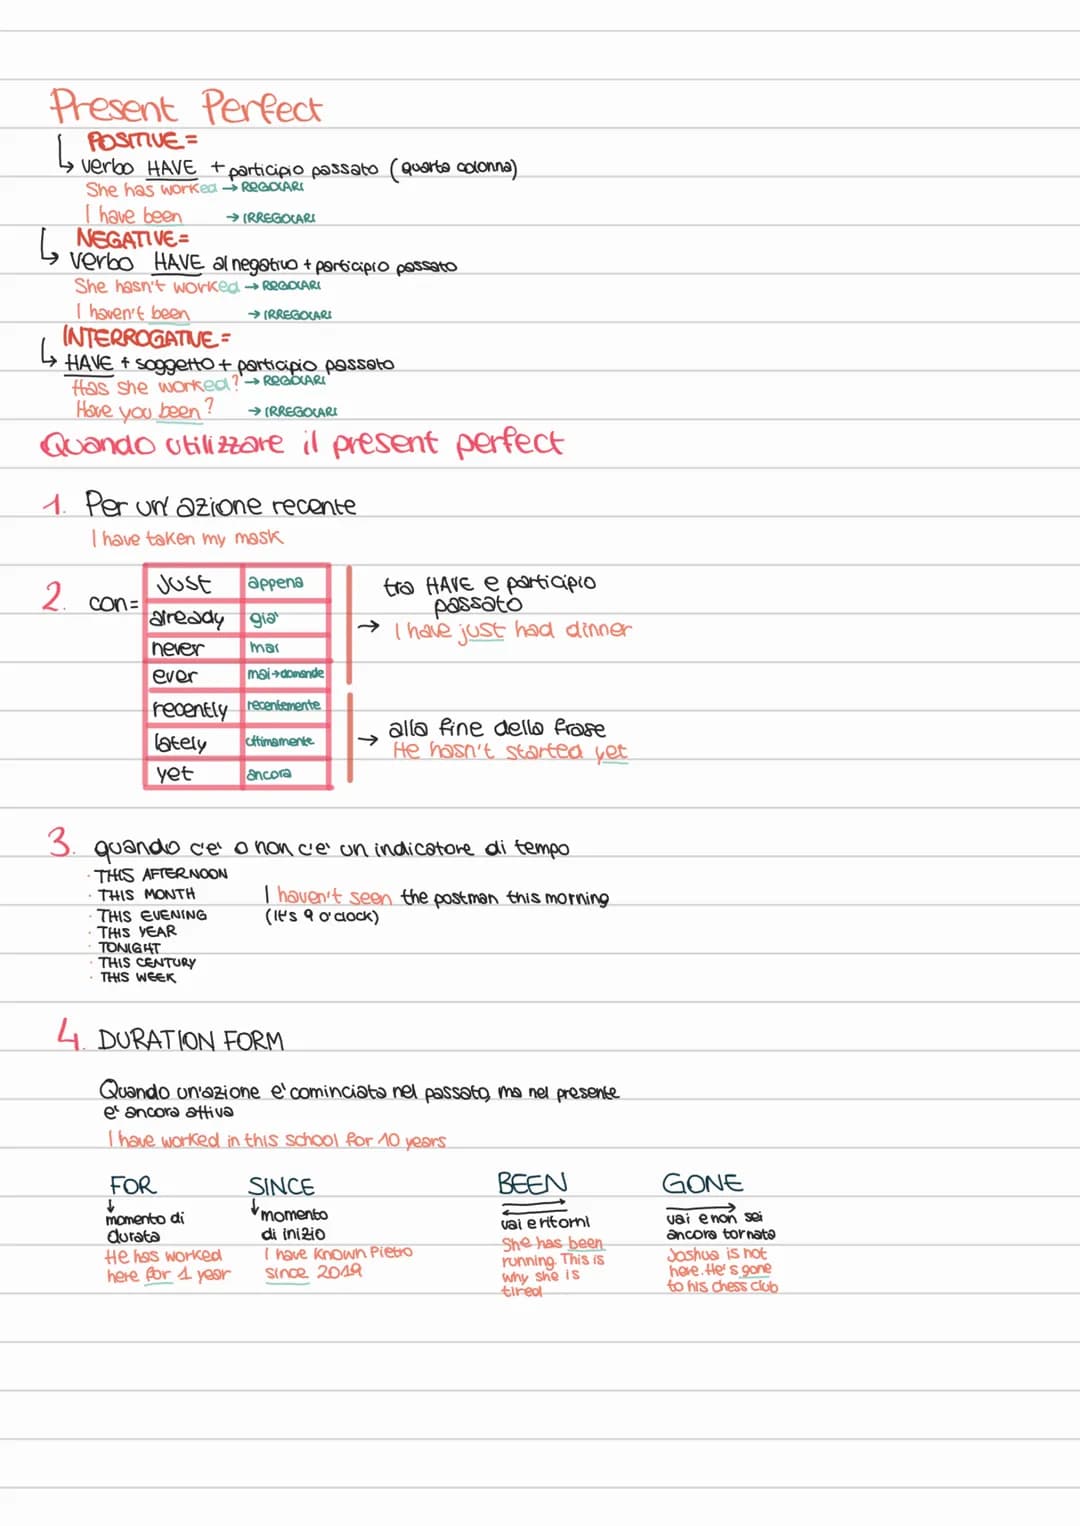 Present Perfect
POSITIVE=
verbo HAVE + participio passato (quarta colonna)
She has worked → REGOLARI
I have been → IRREGOLARI
NEGATIVE=
verbo HAVE al negativo + participio passato
She hasn't worked → REGOLARI
I haven't been → IRREGOLARI
INTERROGATIVE=
HAVE + soggetto + participio passato
Has she worked? → REGOLARI
Have you been? → IRREGOLARI
Quando utilizzare il present perfect
1. Per un'azione recente
I have taken my mask
2. con=
Just appena
already già
never mai
ever mai→domande
recently recentemente
lately ultimamente
yet ancora
tra HAVE e participio
passato
→ I have just had dinner
→ alla fine della frase
He hasn't started yet
3. quando c'e' o non c'e' un indicatore di tempo
· THIS AFTERNOON
· THIS MONTH
· THIS EVENING
· THIS YEAR
· TONIGHT
· THIS CENTURY
· THIS WEEK
I haven't seen the postman this morning
(It's 9 o'clock)
4. DURATION FORM
Quando un'azione e' cominciata nel passato, ma nel presente
e' ancora attiva
I have worked in this school for 10 years
FOR
momento di
durata
He has worked
here for 1 year
SINCE
momento
di inizio
I have known Pietro
since 2019
BEEN
vai e ritorni
She has been
running. This is
why she is
tired
GONE
vai e non sei
ancora tornato
Joshua is not
here. He's gone
to his chess club